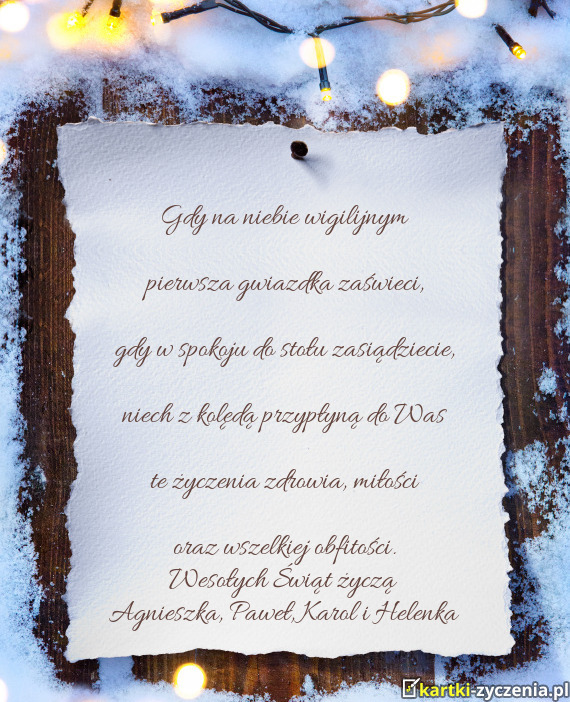 Gdy na niebie wigilijnym
pierwsza gwiazdka zaświeci,
gdy w spokoju do stołu zasiądziecie,
niech z kolędą przypłyną do Was
te życzenia zdrowia, miłości
oraz wszelkiej obfitości.
Wesołych Świąt życzą
Agnieszka, Paweł, Karol i Helenka
kartki-zyczenia.pl